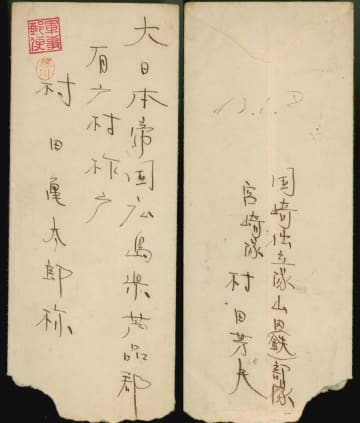 軍事
郵便
大日本帝国広島県芦品郡
有戸村柞戸
村田亀太郎様
13.1.8
国崎支隊山田(鉄)部隊
宮崎隊
村田芳夫